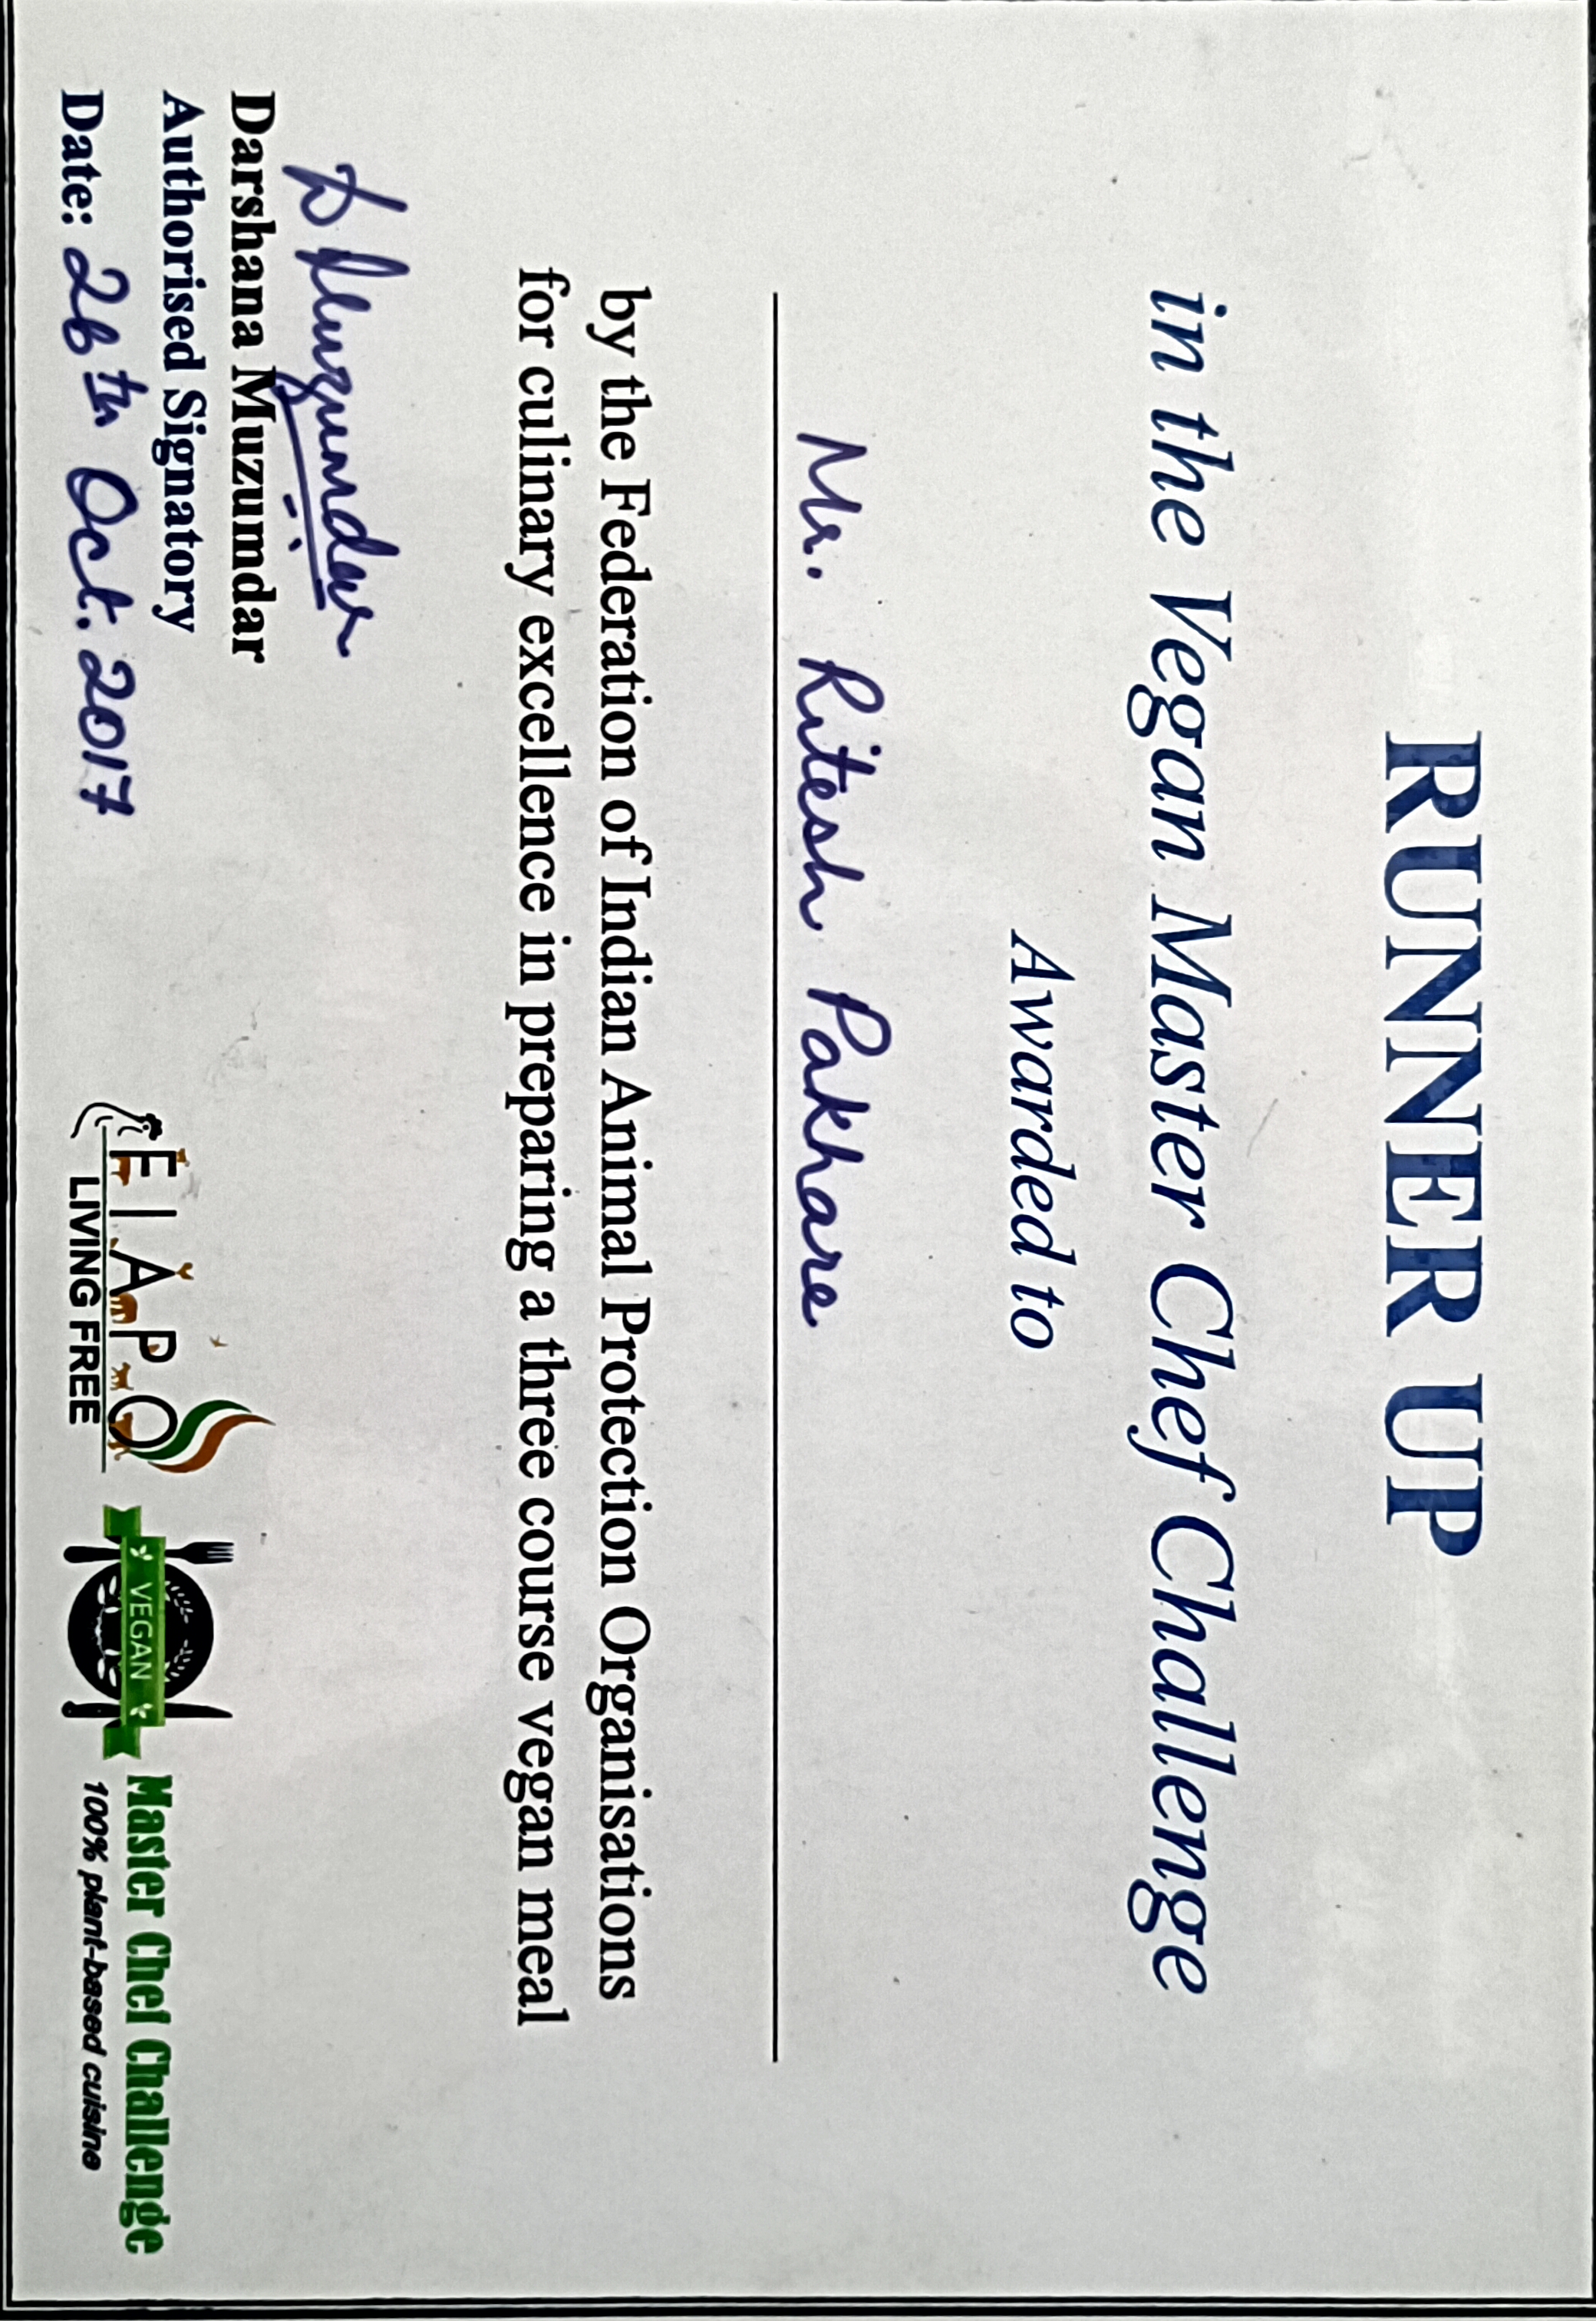 RUNNER UP
in the Vegan Master Chef Challenge
Awarded to
Mr. Ritesh Pakhare
by the Federation of Indian Animal Protection Organisations
for culinary excellence in preparing a three course vegan meal
D Muzumdar
Darshana Muzumdar
Authorised Signatory
Date: 26th Oct. 2017
FIAPO
LIVING FREE
VEGAN
Master Chef Challenge
100% plant-based cuisine